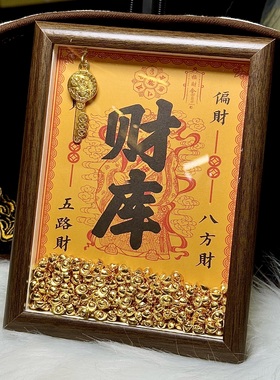 偏財
财库
五路財
八方財